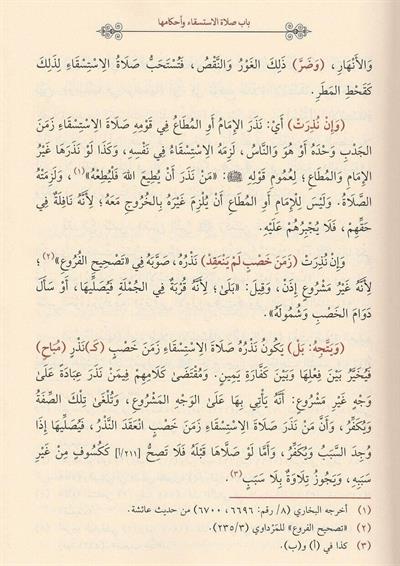 باب صلاة الاستسقاء وأحكامها
وَالأَنْهَارِ، (وَضَرَّ) ذَلِكَ الغَوْرُ وَالنَّقْصُ، فَتُسْتَحَبُّ صَلَاةُ الِاسْتِسْقَاءِ لِذَلِكَ
كَقَحْطِ المَطَرِ.
(وَإِنْ نُذِرَتْ) أَيْ: نَذَرَ الإِمَامُ أَوِ المُطَاعُ فِي قَوْمِهِ صَلَاةَ الِاسْتِسْقَاءِ زَمَنَ
الجَدْبِ وَحْدَهُ أَوْ هُوَ وَالنَّاسُ، لَزِمَهُ الِاسْتِسْقَاءُ فِي نَفْسِهِ، وَكَذَا لَوْ نَذَرَهَا غَيْرُ
الإِمَامِ وَالمُطَاعِ؛ لِعُمُومِ قَوْلِهِ ﷺ: «مَنْ نَذَرَ أَنْ يُطِيعَ اللهَ فَلْيُطِعْهُ»(١)، وَلَزِمَتْهُ
الصَّلَاةُ. وَلَيْسَ لِلْإِمَامِ أَوِ المُطَاعِ أَنْ يُلْزِمَ غَيْرَهُ بِالخُرُوجِ مَعَهُ؛ لِأَنَّهُ نَافِلَةٌ فِي
حَقِّهِمْ، فَلَا يُجْبِرُهُمْ عَلَيْهِ.
وَإِنْ نُذِرَتْ (زَمَنَ خَصْبٍ لَمْ يَنْعَقِدْ) نَذْرُهُ، صَوَّبَهُ فِي «تَصْحِيحِ الفُرُوعِ»(٢)؛
لِأَنَّهُ غَيْرُ مَشْرُوعٍ إِذَنْ، وَقِيلَ: «بَلَى؛ لِأَنَّهُ قُرْبَةٌ فِي الجُمْلَةِ فَيُصَلِّيهَا، أَوْ سَأَلَ
دَوَامَ الخَصْبِ وَشُمُولَهُ».
(وَيَتَّجِهُ: بَلْ) يَكُونُ نَذْرُهُ صَلَاةَ الِاسْتِسْقَاءِ زَمَنَ خَصْبٍ (كَـ)نَذْرِ (مُبَاحٍ)
فَيُخَيَّرُ بَيْنَ فِعْلِهَا وَبَيْنَ كَفَّارَةِ يَمِينٍ. وَمُقْتَضَى كَلَامِهِمْ فِيمَنْ نَذَرَ عِبَادَةً عَلَى
وَجْهٍ غَيْرِ مَشْرُوعٍ: أَنَّهُ يَأْتِي بِهَا عَلَى الوَجْهِ المَشْرُوعِ، وَتُلْغَى تِلْكَ الصِّفَةُ
وَيُكَفِّرُ، وَأَنَّ مَنْ نَذَرَ صَلَاةَ الِاسْتِسْقَاءِ زَمَنَ خَصْبٍ انْعَقَدَ النَّذْرُ، فَيُصَلِّيهَا إِذَا
وُجِدَ السَّبَبُ وَيُكَفِّرُ، وَأَمَّا لَوْ صَلَّاهَا قَبْلَهُ فَلَا تَصِحُّ [٢١١/أ] كَكُسُوفٍ مِنْ غَيْرِ
سَبَبِهِ، وَيَجُوزُ تِلَاوَةٌ بِلَا سَبَبٍ(٣).
(١) أخرجه البخاري (٨/ رقم: ٦٦٩٦ ، ٦٧٠٠) من حديث عائشة.
(٢) «تصحيح الفروع» للمَرْداوي (٣/٢٣٥).
(٣) كذا في (أ) و(ب).